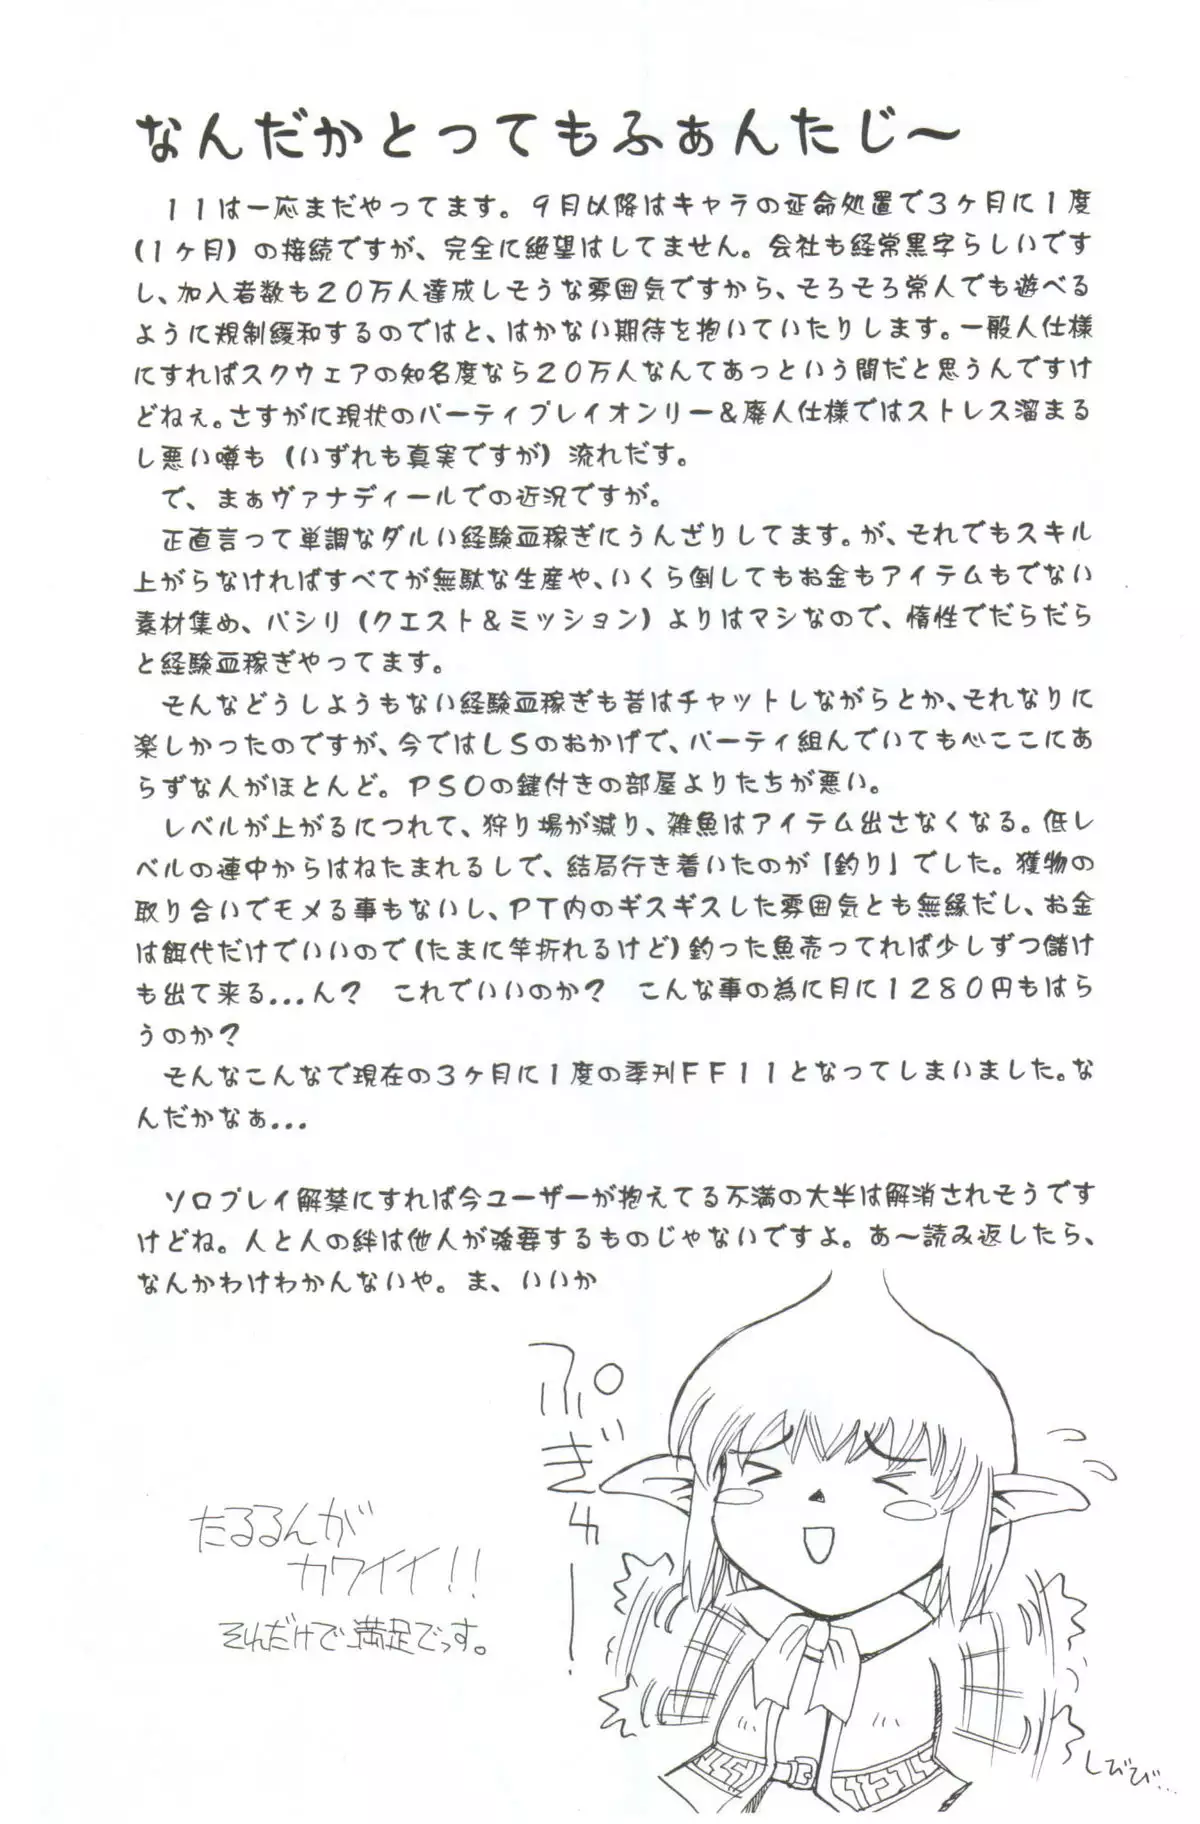 なんだかとってもふぁんたじ～
１１は一応まだやってます。９月以降はキャラの延命処置で３ヶ月に１度
(１ヶ月) の接続ですが、完全に絶望はしてません。会社も経常黒字らしいです
し、加入者数も２０万人達成しそうな雰囲気ですから、そろそろ常人でも遊べる
ように規制緩和するのではと、はかない期待を抱いていたりします。一般人仕様
にすればスクウェアの知名度なら２０万人なんてあっという間だと思うんですけ
どねぇ。さすがに現状のパーティプレイオンリー＆廃人仕様ではストレス溜まる
し悪い噂も (いずれも真実ですが) 流れだす。
で、まぁヴァナディールでの近況ですが。
正直言って単調なダルい経験血稼ぎにうんざりしてます。が、それでもスキル
上がらなければすべてが無駄な生産や、いくら倒してもお金もアイテムもでない
素材集め、パシリ (クエスト＆ミッション) よりはマシなので、惰性でだらだら
と経験血稼ぎやってます。
そんなどうしようもない経験血稼ぎも昔はチャットしながらとか、それなりに
楽しかったのですが、今ではＬＳのおかげで、パーティ組んでいても心ここにあ
らずな人がほとんど。ＰＳＯの鍵付きの部屋よりたちが悪い。
レベルが上がるにつれて、狩り場が減り、雑魚はアイテム出さなくなる。低レ
ベルの連中からはねたまれるしで、結局行き着いたのが「釣り」でした。獲物の
取り合いでモメる事もないし、ＰＴ内のギスギスした雰囲気とも無縁だし、お金
は餌代だけでいいので (たまに竿折れるけど) 釣った魚売ってれば少しずつ儲け
も出て来る...ん？　これでいいのか？　こんな事の為に月に１２８０円もはら
うのか？
そんなこんなで現在の３ヶ月に１度の季刊ＦＦ１１となってしまいました。な
んだかなぁ...
ソロプレイ解禁にすれば今ユーザーが抱えてる不満の大半は解消されそうです
けどね。人と人の絆は他人が強要するものじゃないですよ。あ～読み返したら、
なんかわけわかんないや。ま、いいか
ぷぎゅー！
たるるんが
カワイイ!!
それだけで満足でっす。
しびび...